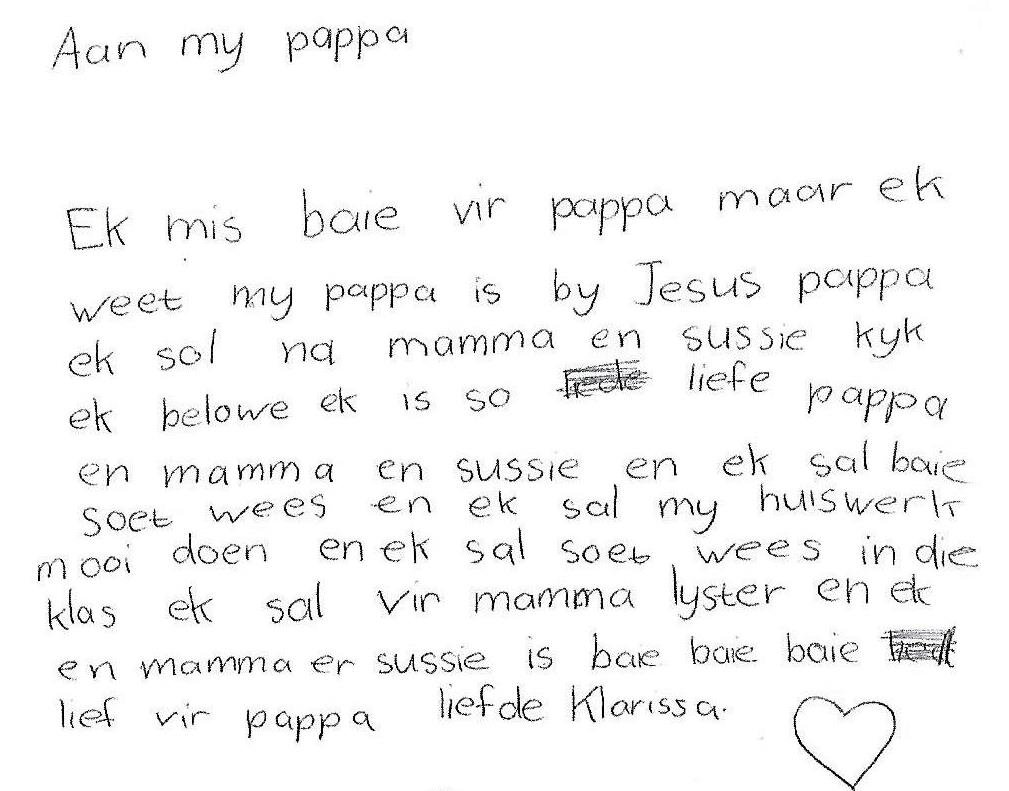 Aan my pappa
Ek mis baie vir pappa maar ek
weet my pappa is by Jesus pappa
ek sol na mamma en sussie kyk
ek belowe ek is so liefe pappa
en mamma en sussie en ek sal baie
soet wees en ek sal my huiswerk
mooi doen en ek sal soet wees in die
klas ek sal vir mamma lyster en ek
en mamma er sussie is bae baie baie
lief vir pappa liefde Klarissa.